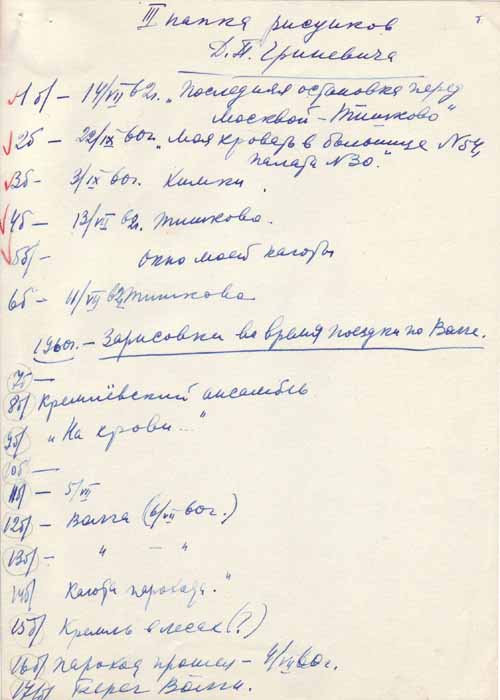 III папка рисунков
Д.П. Гриневича
1б) – 14/VII 62г. „Последняя остановка перед
Москвой – Тишково"
2б – 22/IX 60г. „Моя кровать в больнице N 54,
палата N 30."
3б – 3/IX 60г. Химки.
4б – 13/VII 62г. Тишково.
5б) – Окно моей каюты
6б – 11/VII 62г Тишково
1960г. – Зарисовки во время поездки по Волге.
7б –
8б) Кремлёвский ансамбль
9б) „На крови..."
10б –
11б) – 5/VII
12б) – Волга (6/VII 60г.)
13б) – „ – „
14б) Каюта парохода."
15б) Кремль в лесах (?)
16б) Пароход прошел – 4/VII 60г.
17б) Берег Волги.